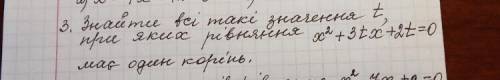 3. Знайти всі такі значення t,
при яких рівняння x² + 3tx + 2t = 0
має один корінь.